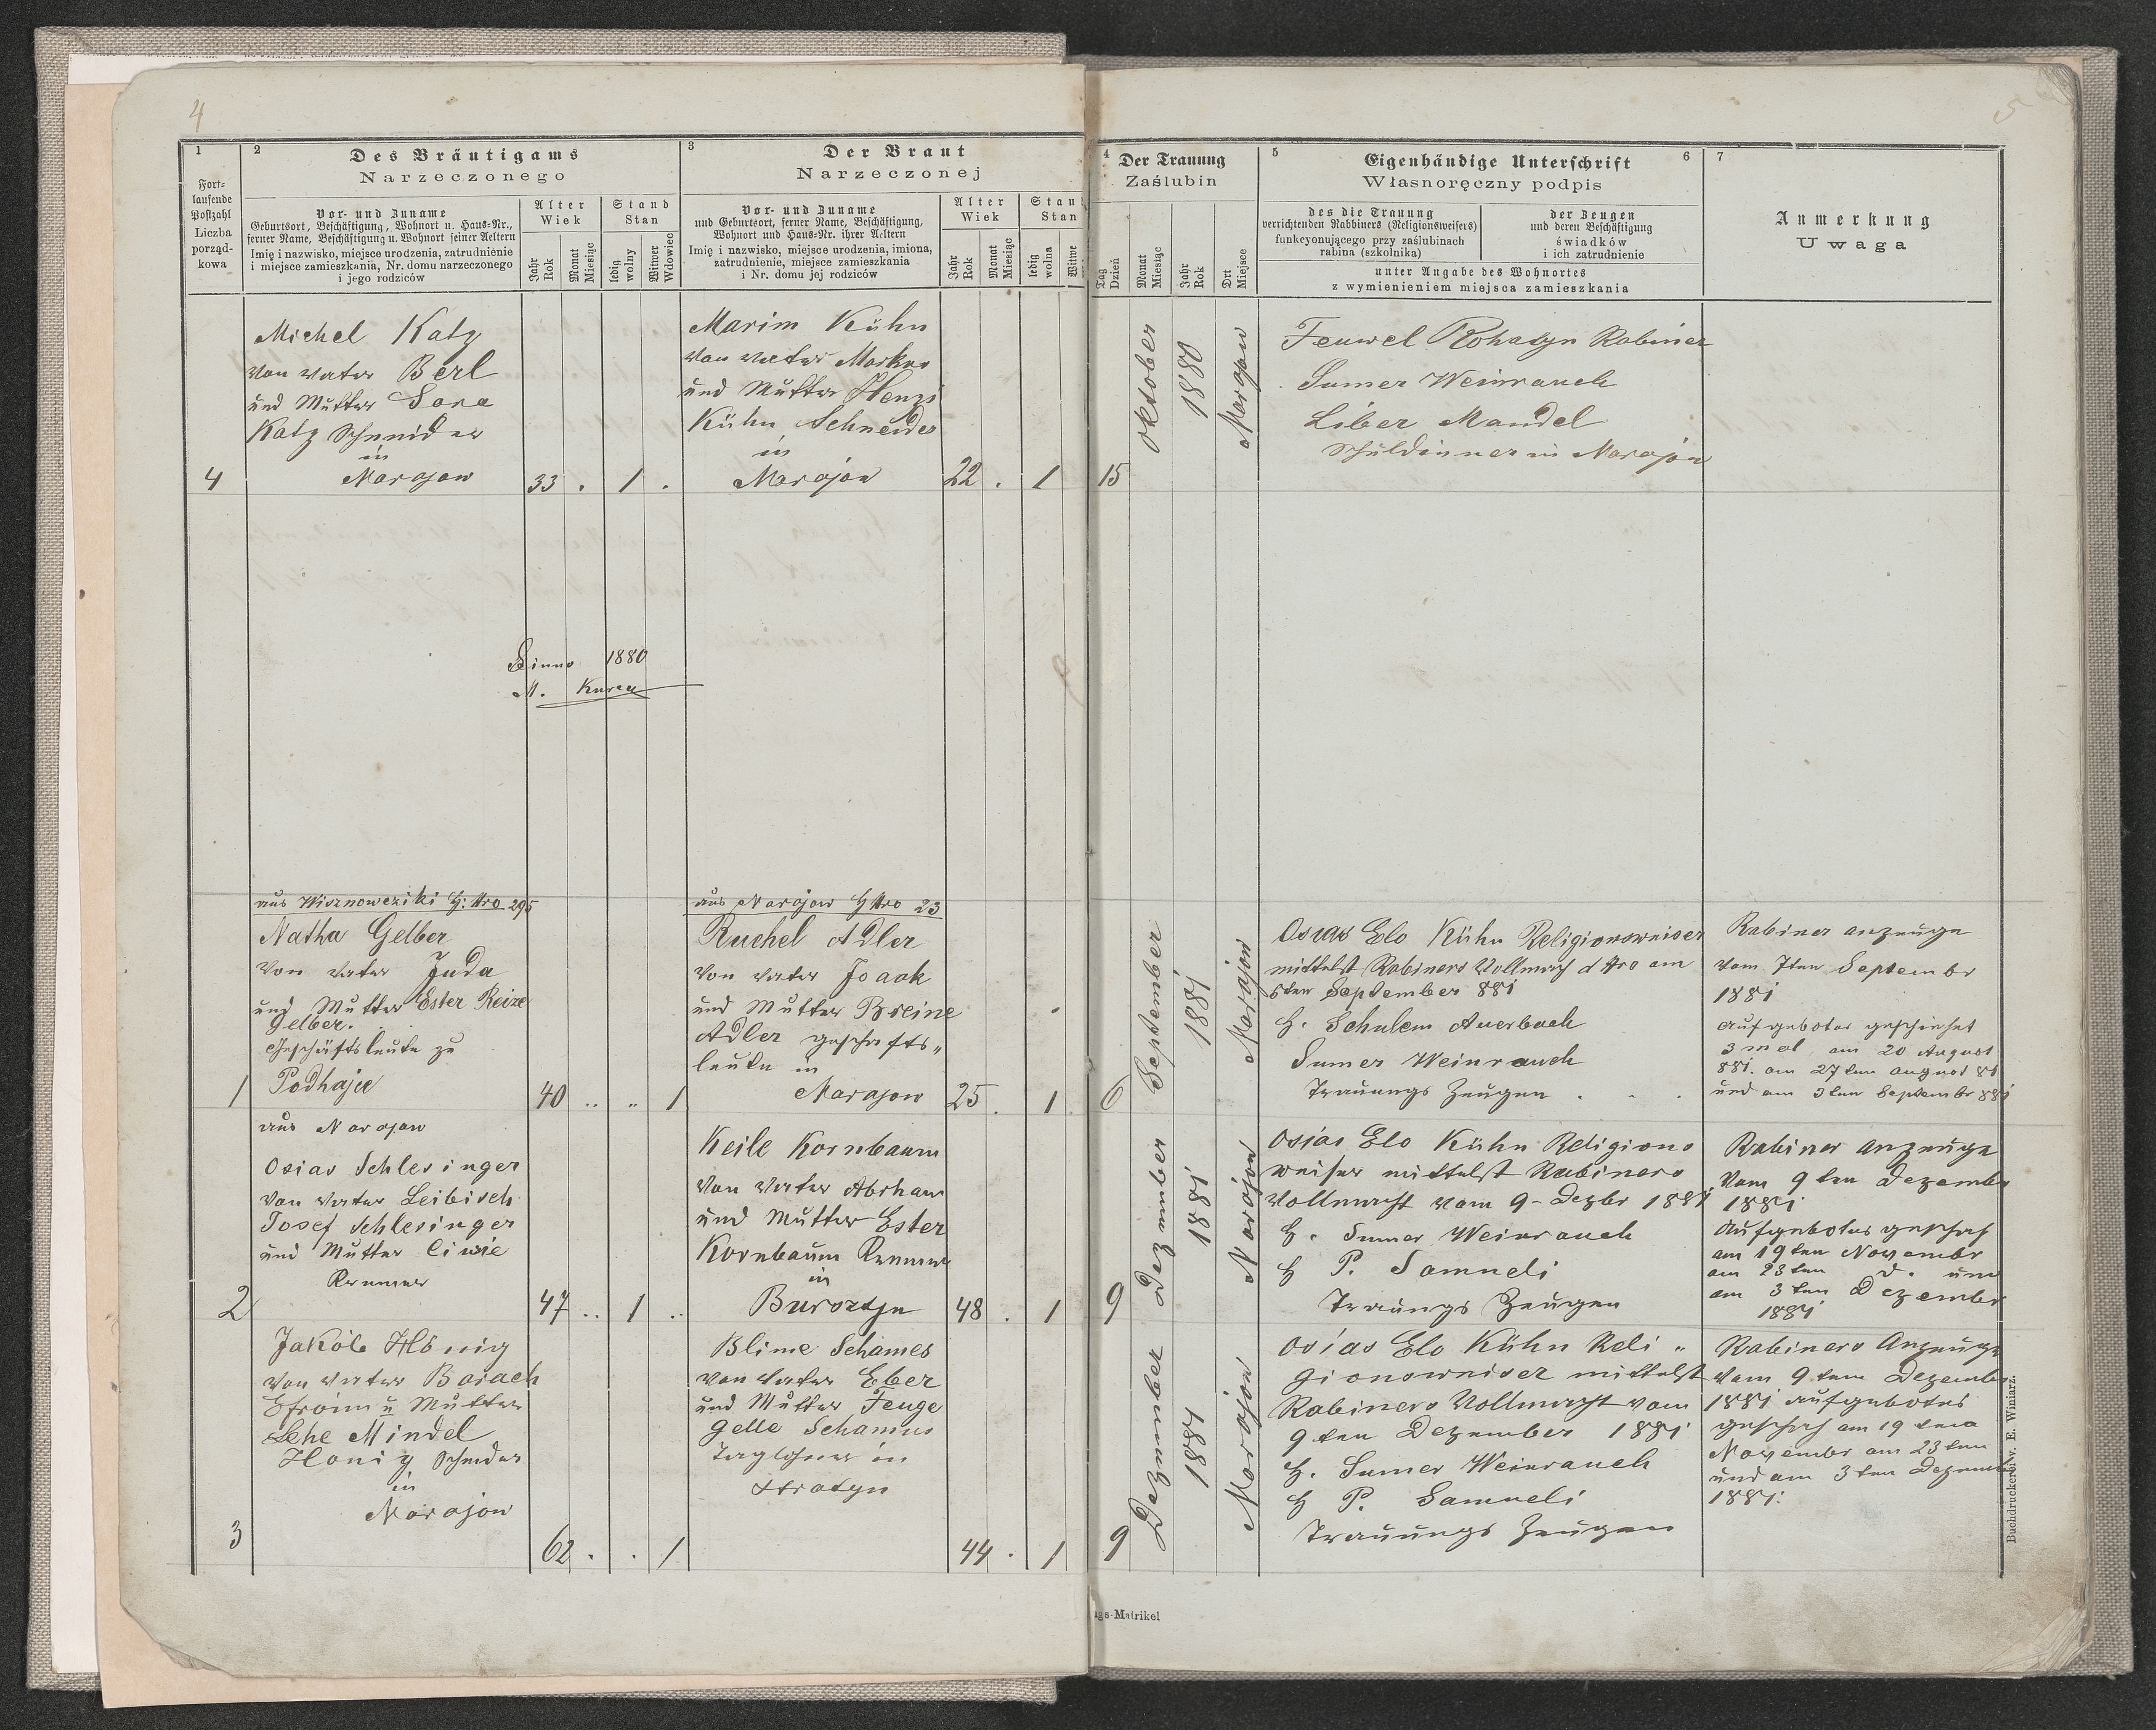 4
5
1
2
3
4
5
6
7
Des Bräutigams
Narzeczonego
Der Braut
Narzeczonej
Der Trauung
Zaślubin
Eigenhändige Unterschrift
Własnoręczny podpis
Anmerkung
Uwaga
Fort-
laufende
Postzahl
Liczba
porząd-
kowa
Vor- und Zuname
Geburtsort, Beschäftigung, Wohnort u. Haus-Nr.,
ferner Name, Beschäftigung u. Wohnort seiner Aeltern
Imię i nazwisko, miejsce urodzenia, zatrudnienie
i miejsce zamieszkania, Nr. domu narzeczonego
i jego rodziców
Alter
Wiek
Stand
Stan
Jahr
Rok
Monat
Miesiąc
ledig
wolny
Witwer
Wdowiec
Vor- und Zuname
und Geburtsort, ferner Name, Beschäftigung,
Wohnort und Haus-Nr. ihrer Aeltern
Imię i nazwisko, miejsce urodzenia, imiona,
zatrudnienie, miejsce zamieszkania
i Nr. domu jej rodziców
Alter
Wiek
Stan
Stan
Jahr
Rok
Monat
Miesiąc
ledig
wolna
Witwe
Tag
Dzień
Monat
Miesiąc
Jahr
Rok
Ort
Miejsce
des die Trauung
verrichtenden Rabbiners (Religionsweisers)
funkcyonującego przy zaślubinach
rabina (szkolnika)
der Zeugen
und deren Beschäftigung
świadków
i ich zatrudnienie
unter Angabe des Wohnortes
z wymienieniem miejsca zamieszkania
Michel Katz
von vater Berl
und Mutter Sara
Katz Schneider
in
Narajow
4
33 . 1 .
Marim Kühn
von vater Markus
und Mutter Henzi
Kühn Schneider
in
Narajow
22 . 1
15
Oktober
1880
Narajow
Feuwel Rohatyn Rabiner
Sumer Weinrauch
Liber Mandel
Schuldinner in Narajow
1880
M.
aus Wisznowcziki H: Nro 295
Natha Gelber
von vater Juda
und Mutter Ester Reize
Gelber.
Geschäftsleute zu
Podhajce
1
40 .. .. 1
aus Narajow H Nro 23
Ruchel Adler
von vater Joach
und Mutter Breine
Adler geschefts„
leute in
Narajow
25 . 1
6
September
1881
Narajow
Osias Elo Kühn Religionsweiser
mittelst Rabiners Vollmach d Nro am
5ten September 881
H. Schulem Auerbach
Sumer Weinrauch
Trauungs Zeugen . . .
Rabiner anzeuge
vom 7ten September
1881
aufgebotes geschiehet
3 mal, am 20 August
881. am 27ten august 81
und am 3ten Septembr 881
aus Narajow
Osias Schlesinger
von vater Leibisch
Josef Schlesinger
und Mutter Ciwie
2
47 .. 1 ..
Keile Kornbaum
von vater Abraham
und Mutter Ester
Kornbaum
in
Bursztyn
48 . 1
9
Dezember
1881
Narajow
Osias Elo Kühn Religions
weiser mittelst Rabiners
Vollmacht vom 9 - Dezbr 1881
H. Sumer Weinrauch
H P. Samueli
Traungs Zeugen
Rabiner anzeuge
vom 9ten Dezember
1881
Aufgebotes geschah
am 19ten Novembr
am 23ten d. und
am 3ten Dezember
1881
Jakob Hönig
von vater Barach
Efroim u Mutter
Lehe Mindel
Honig Schneider
in
Narajow
3
62 . . 1
Blime Schames
von vater Eber
und Mutter Feuge
Gelle Schames
Taglöhner in
Stratyn
44 . 1
9
Dezember
1881
Narajow
Osias Elo Kühn Reli „
gionsweiser mittelst
Rabiners Vollmacht vom
9ten Dezember 1881
H. Sumer Weinrauch
H P. Samueli
Trauungs Zeugen
Rabiners Anzeuge
vom 9ten Dezember
1881 aufgebotes
geschah am 19ten
November am 23ten
und am 3ten Dezember
1881.
Buchdruckerei v. E. Winiarz.
ngs-Matrikel